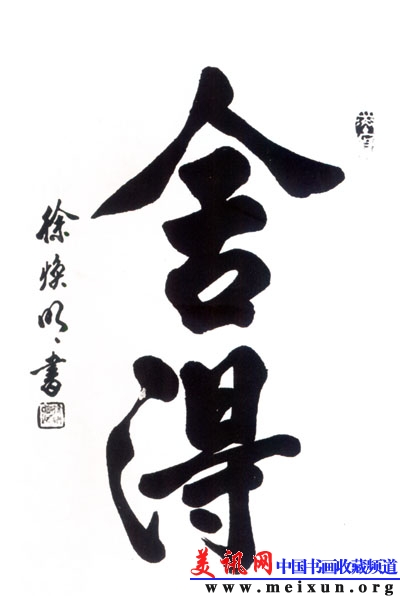 舍得
徐焕明书
美讯网 中国书画收藏频道
www.meixun.org